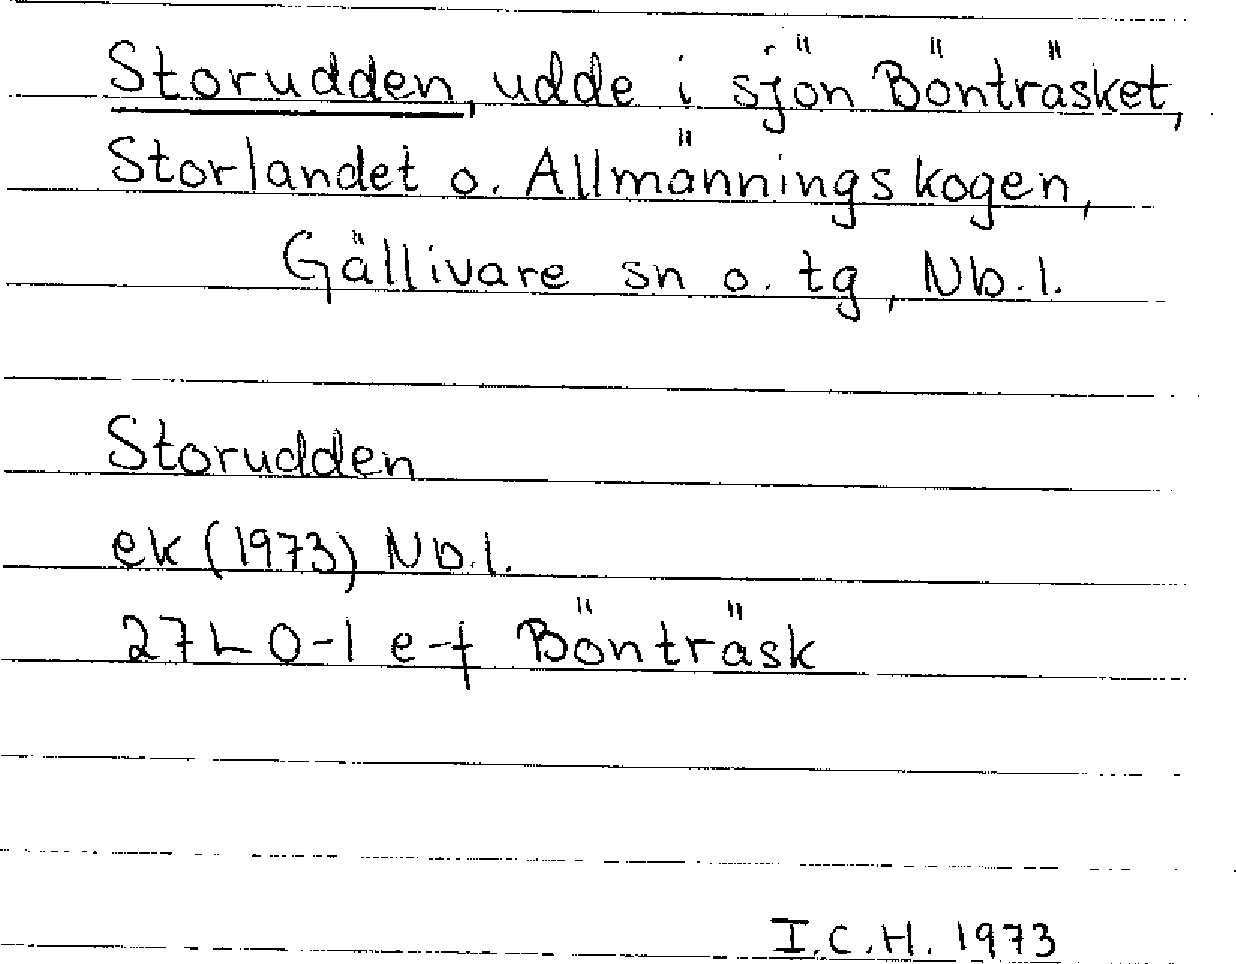 Storudden, udde i sjön Bönträsket,
Storlandet o. Allmänningskogen,
Gällivare sn o. tg, Nb.l.
Storudden
ek (1973) Nb.l.
27L 0-1 e-f Bönträsk
I.C.H. 1973